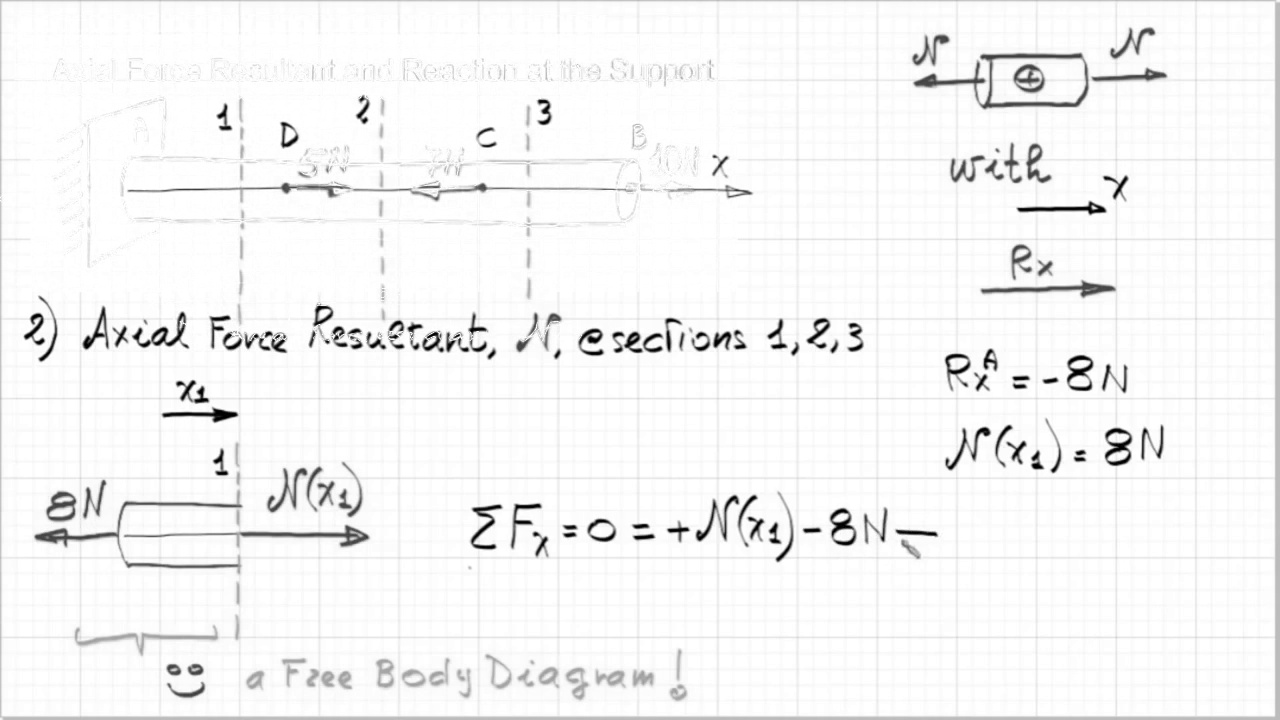 Axial Force Resultant and Reaction at the Support
1 2 3
A D C B
5N 7N 10N x
N N
+
with
x
Rx
2) Axial Force Resultant, N, @sections 1, 2, 3
RxA = -8N
N(x1) = 8N
x1
1
8N N(x1)
ΣFx = 0 = +N(x1) - 8N —
a Free Body Diagram!